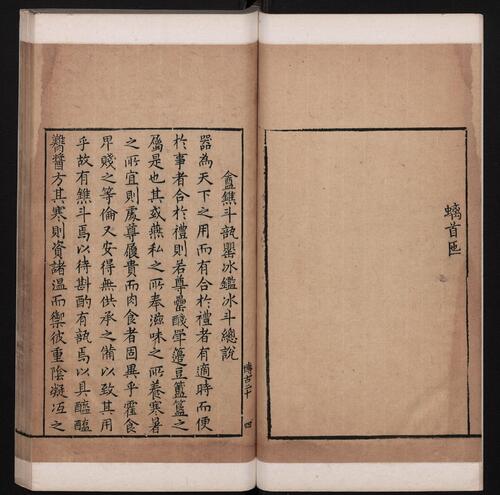 螭首匜
盦鐎斗瓿罌冰鑑冰斗總説
器為天下之用而有合於禮者有適時而便
於事者合於禮則若尊罍醆斝籩豆簠簋之
屬是也其或燕私之所奉滋味之所養寒暑
之所宜則處尊履貴而肉食者固異乎藿食
卑賤之等倫又安得無供承之備以致其用
乎故有鐎斗焉以待斟酌有瓿焉以具醯醢
醬方其寒則資諸温而禦彼重陰凝冱之
博古二十 四